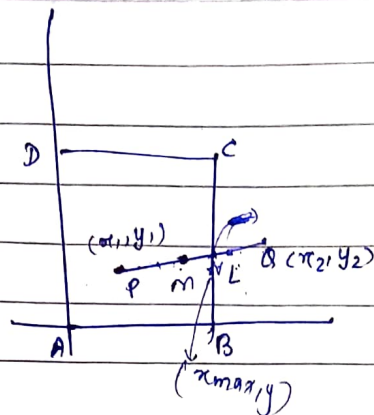 D
C
(x1, y1)
P
M
L
Q (x2, y2)
A
B
(xmax, y)